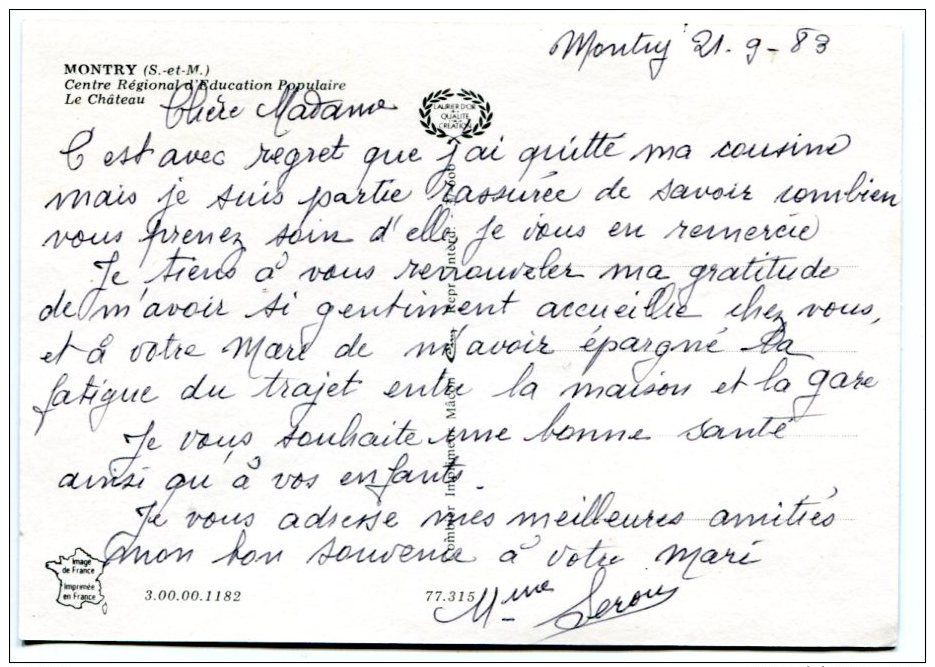 Montry 21.9-83
MONTRY (S.-et-M.)
Centre Régional d'Education Populaire
Le Château
LAURIER D'OR
DE LA
QUALITÉ
CRÉATION
Chère Madame
C'est avec regret que j'ai quitté ma cousine
mais je suis partie rassurée de savoir combien
vous prenez soin d'elle. Je vous en remercie
Je tiens à vous renouveler ma gratitude
de m'avoir si gentiment accueillie chez vous,
et à votre Mari de m'avoir épargné la
fatigue du trajet entre la maison et la gare
Je vous souhaite une bonne santé
ainsi qu'à vos enfants.
Je vous adresse mes meilleures amitiés
mon bon souvenir à votre mari
Mme
Image
de France
Imprimée
en France
3.00.00.1182
77.315
Combier Imprimeur Mâcon